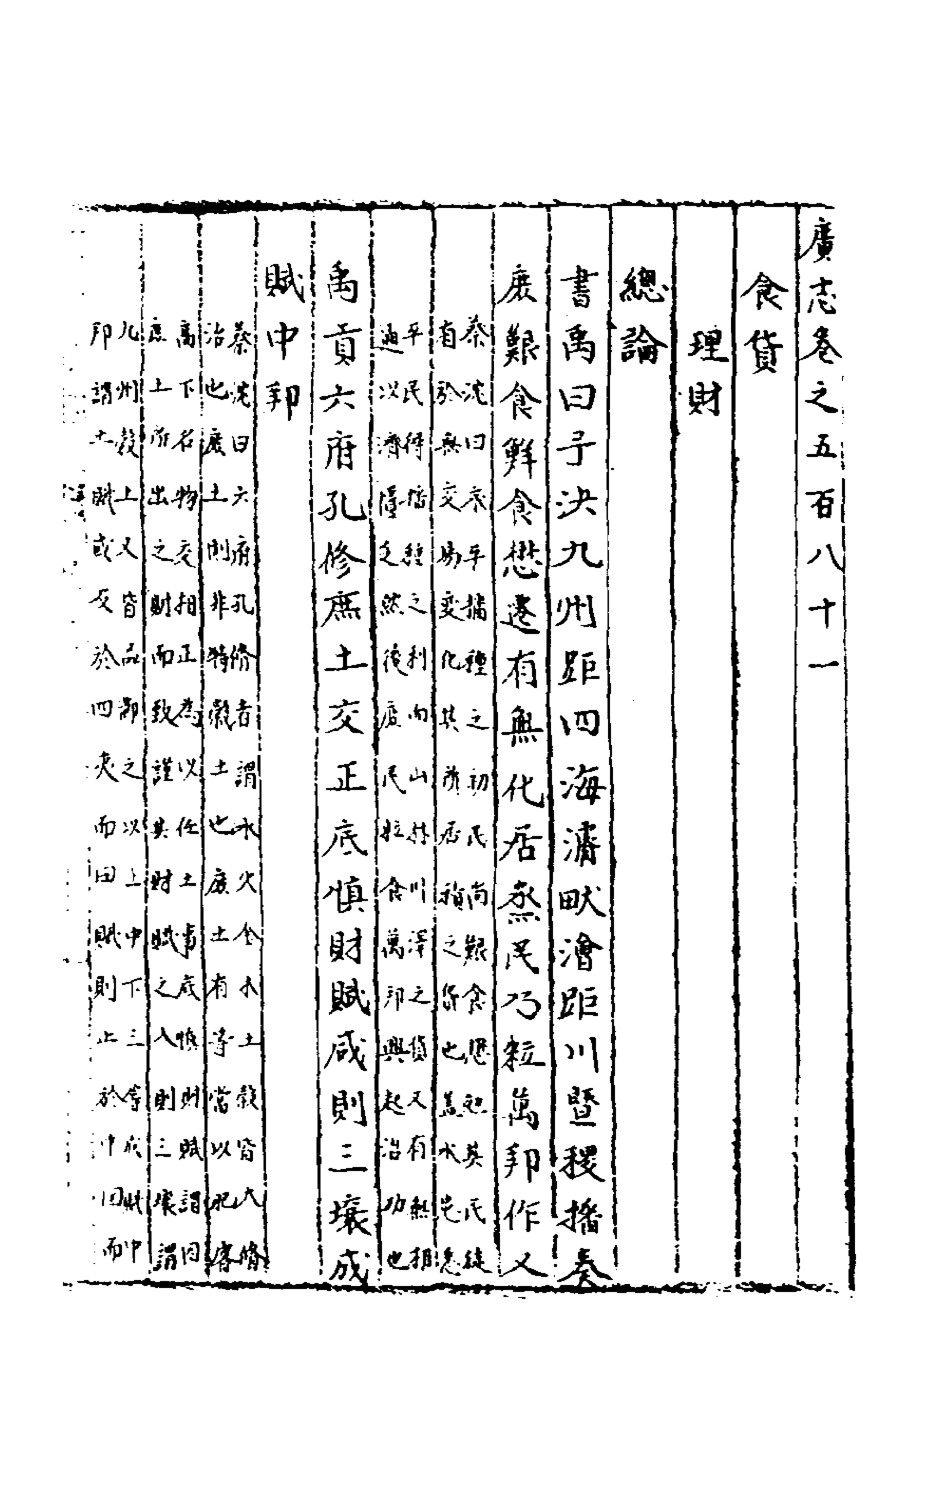 廣志卷之五百八十一
食貨
理財
總論
書禹曰予決九州距四海濬畎澮距川暨稷播奏
庶艱食鮮食懋遷有無化居烝民乃粒萬邦作乂
蔡沈曰水平播種之初民尚艱食懋勉其民徙
有於無交易變化其所居積之貨也蓋水患悉
平民得播種之利而山林川澤之貨又有無相
通以濟匱乏然後庶民粒食萬邦興起治功也
禹貢六府孔修庶土交正底慎財賦咸則三壤成
賦中邦
蔡沈曰六府孔修者謂水火金木土穀皆大修
治也庶土則非特穀土也庶土有等當以肥瘠
高下名物交相正為以任土事底慎財賦謂因
庶土所出之財而致謹其財賦之入則三壤謂
九州穀土又皆品節之以上中下三等成賦中
邦謂土賦或及於四夷而田賦則止於中國而